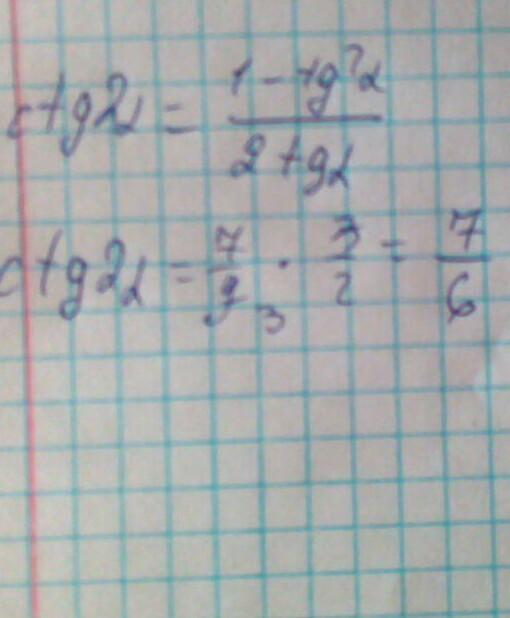 ctg2α = (1 - tg²α) / (2 tgα)
ctg2α = 7/9 3 · 3/2 = 7/6